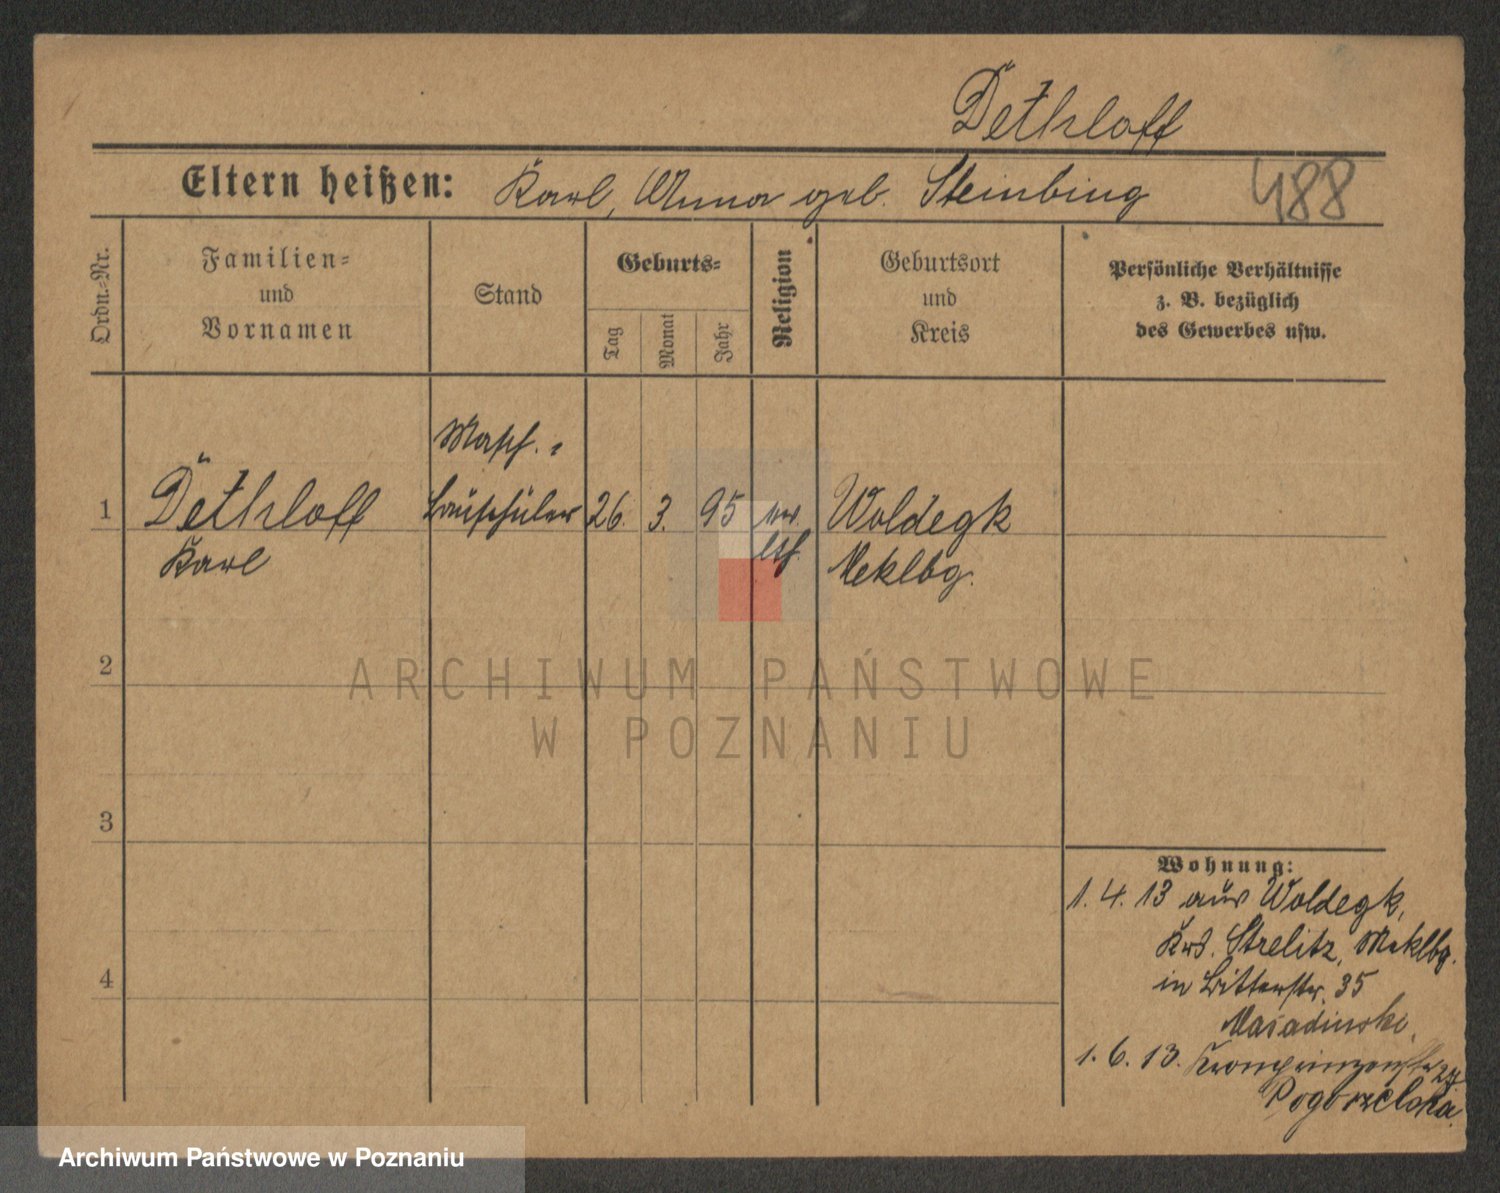 Dethloff
Eltern heißen: Karl, Anna geb. Steinbing
488
Ordn.-Nr.
Familien-
und
Vornamen
Stand
Geburts-
Tag
Monat
Jahr
Religion
Geburtsort
und
Kreis
Persönliche Verhältnisse
z. B. bezüglich
des Gewerbes usw.
Masch.-
1 Dethloff Bauschüler 26. 3. 95 Woldegk
Karl Meklbg.
2
3
4
Wohnung:
1. 4. 13 aus Woldegk,
Krs. Strelitz, Meklbg.
in Ritterstr. 35
1. 6. 13. Kronprinzenstr
Pogorzelska
ARCHIWUM PAŃSTWOWE
W POZNANIU
Archiwum Państwowe w Poznaniu